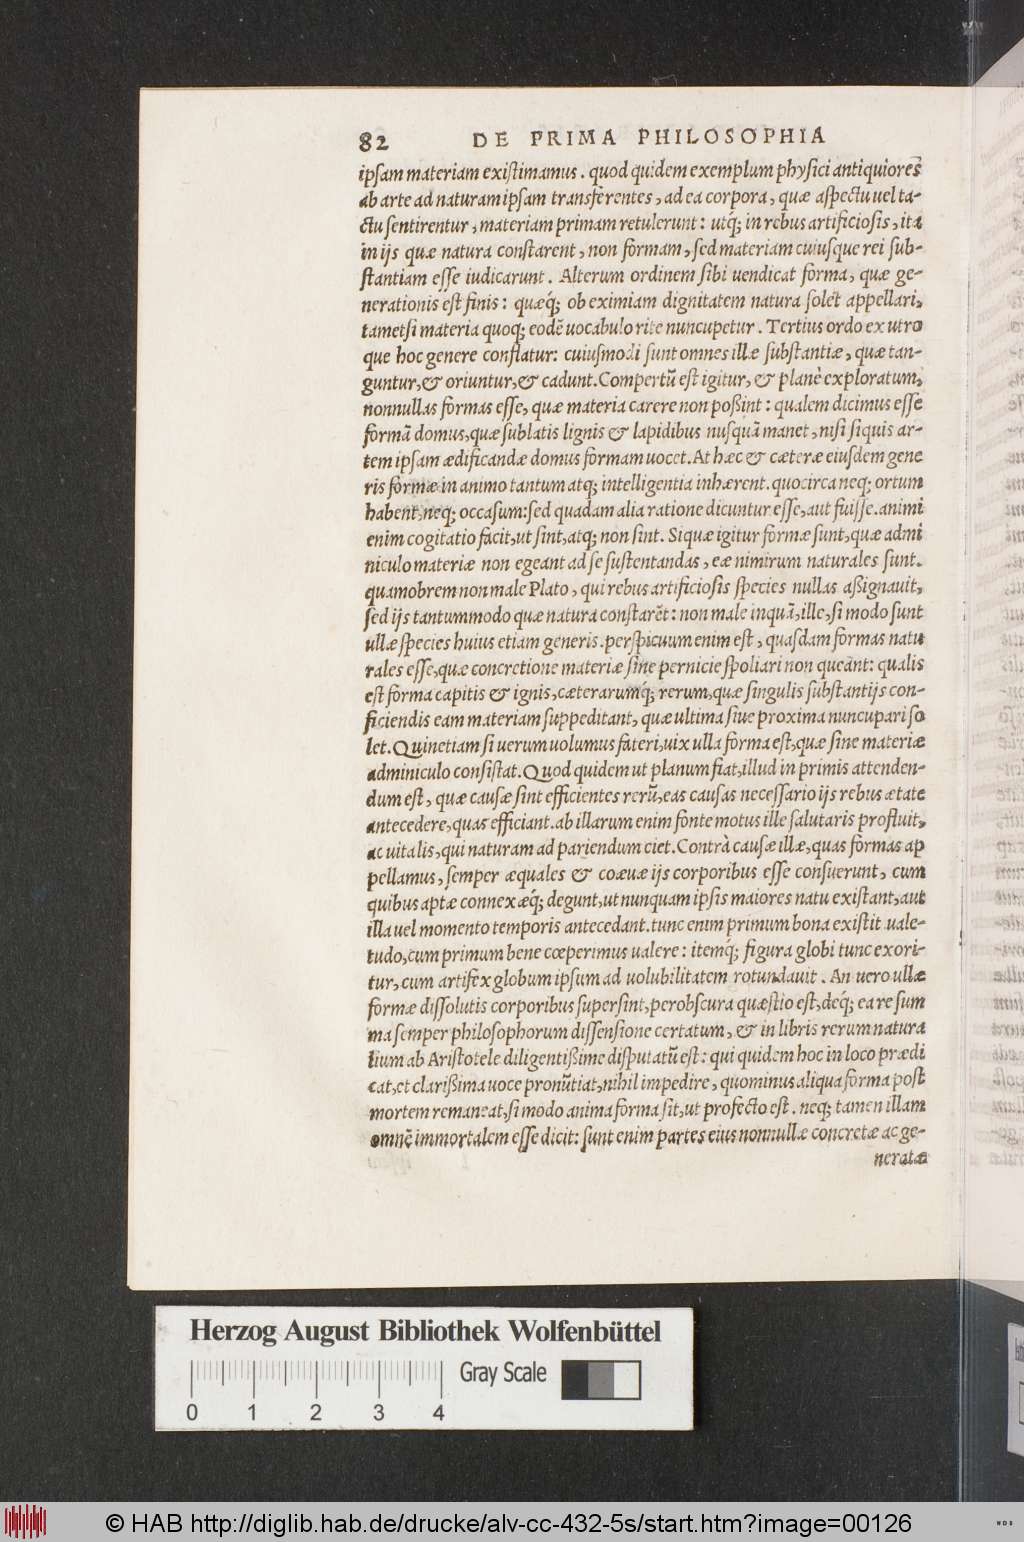 82 DE PRIMA PHILOSOPHIA
ipsam materiam existimamus. quod quidem exemplum physici antiquiores
ab arte ad naturam ipsam transferentes, ad ea corpora, quæ aspectu uel ta-
ctu sentirentur, materiam primam retulerunt: utq́; in rebus artificiosis, ita
in ijs quæ natura constarent, non formam, sed materiam cuiusque rei sub-
stantiam esse iudicarunt. Alterum ordinem sibi uendicat forma, quæ ge-
nerationis est finis: quæq́; ob eximiam dignitatem natura solet appellari,
tametsi materia quoq; eodẽ uocabulo rite nuncupetur. Tertius ordo ex utro
que hoc genere conflatur: cuiusmodi sunt omnes illæ substantiæ, quæ tan-
guntur, & oriuntur, & cadunt. Compertũ est igitur, & planè exploratum,
nonnullas formas esse, quæ materia carere non poßint: qualem dicimus esse
formã domus, quæ sublatis lignis & lapidibus nusquã manet, nisi siquis ar-
tem ipsam ædificandæ domus formam uocet. At hæc & cæteræ eiusdem gene
ris formæ in animo tantum atq; intelligentia inhærent. quocirca neq; ortum
habent, neq; occasum: sed quadam alia ratione dicuntur esse, aut fuisse. animi
enim cogitatio facit, ut sint, atq; non sint. Siquæ igitur formæ sunt, quæ admi
niculo materiæ non egeant ad se sustentandas, eæ nimirum naturales sunt.
quamobrem non male Plato, qui rebus artificiosis species nullas aßignauit,
sed ijs tantummodo quæ natura constarẽt: non male inquã, ille, si modo sunt
ullæ species huius etiam generis. perspicuum enim est, quasdam formas natu
rales esse, quæ concretione materiæ sine pernicie spoliari non queant: qualis
est forma capitis & ignis, cæterarumq́; rerum, quæ singulis substantijs con-
ficiendis eam materiam suppeditant, quæ ultima siue proxima nuncupari so
let. Quinetiam si uerum uolumus fateri, uix ulla forma est, quæ sine materiæ
adminiculo consistat. Quod quidem ut planum fiat, illud in primis attenden-
dum est, quæ causæ sint efficientes rerũ, eas causas necessario ijs rebus ætate
antecedere, quas efficiant. ab illarum enim fonte motus ille salutaris profluit,
ac uitalis, qui naturam ad pariendum ciet. Contrà causæ illæ, quas formas ap
pellamus, semper æquales & coæuæ ijs corporibus esse consuerunt, cum
quibus aptæ connexæq́; degunt, ut nunquam ipsis maiores natu existant, aut
illa uel momento temporis antecedant. tunc enim primum bona existit uale-
tudo, cum primum bene cœperimus ualere: itemq́; figura globi tunc exori-
tur, cum artifex globum ipsum ad uolubilitatem rotundauit. An uero ullæ
formæ dissolutis corporibus supersint, perobscura quæstio est, deq́; ea re sum
ma semper philosophorum dissensione certatum, & in libris rerum natura
lium ab Aristotele diligentißime disputatũ est: qui quidem hoc in loco prædi
cat, et clarißima uoce pronũtiat, nihil impedire, quominus aliqua forma post
mortem remaneat, si modo anima forma sit, ut profecto est. neq; tamen illam
omnẽ immortalem esse dicit: sunt enim partes eius nonnullæ concretæ ac ge-
neratæ
Herzog August Bibliothek Wolfenbüttel
Gray Scale
0 1 2 3 4
© HAB http://diglib.hab.de/drucke/alv-cc-432-5s/start.htm?image=00126